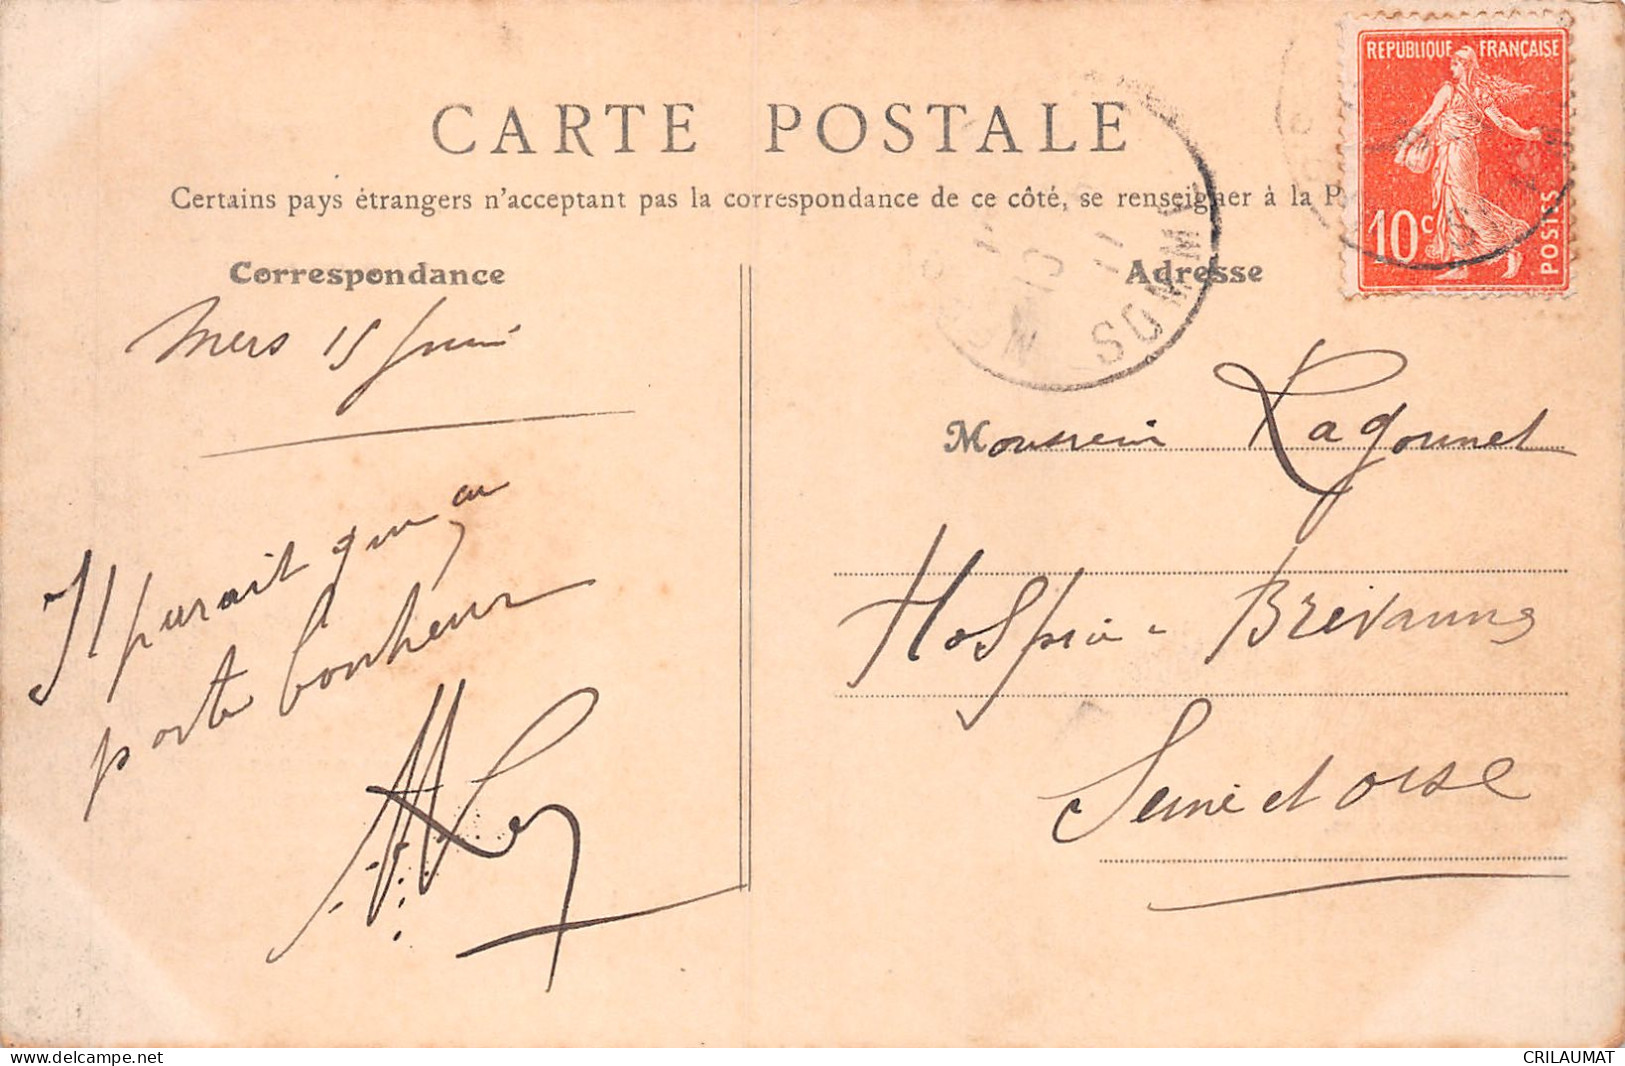 CARTE POSTALE
Certains pays étrangers n'acceptant pas la correspondance de ce côté, se renseigner à la P
Correspondance
Adresse
REPUBLIQUE FRANÇAISE
10c
POSTES
SOMME
Mers 15 Juin
Il parait que ça
porte bonheur
Monsieur Lagounet
Hospice Brévannes
Seine et Oise
www.delcampe.net
CRILAUMAT